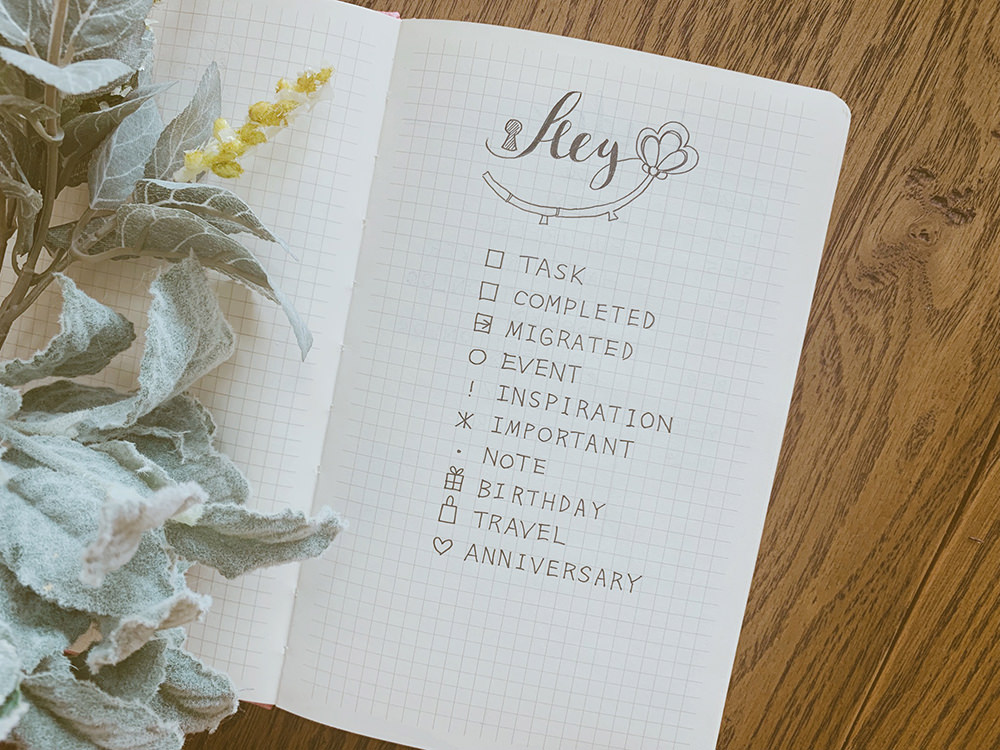 Key
☐ TASK
☐ COMPLETED
MIGRATED
○ EVENT
! INSPIRATION
* IMPORTANT
· NOTE
BIRTHDAY
TRAVEL
♡ ANNIVERSARY